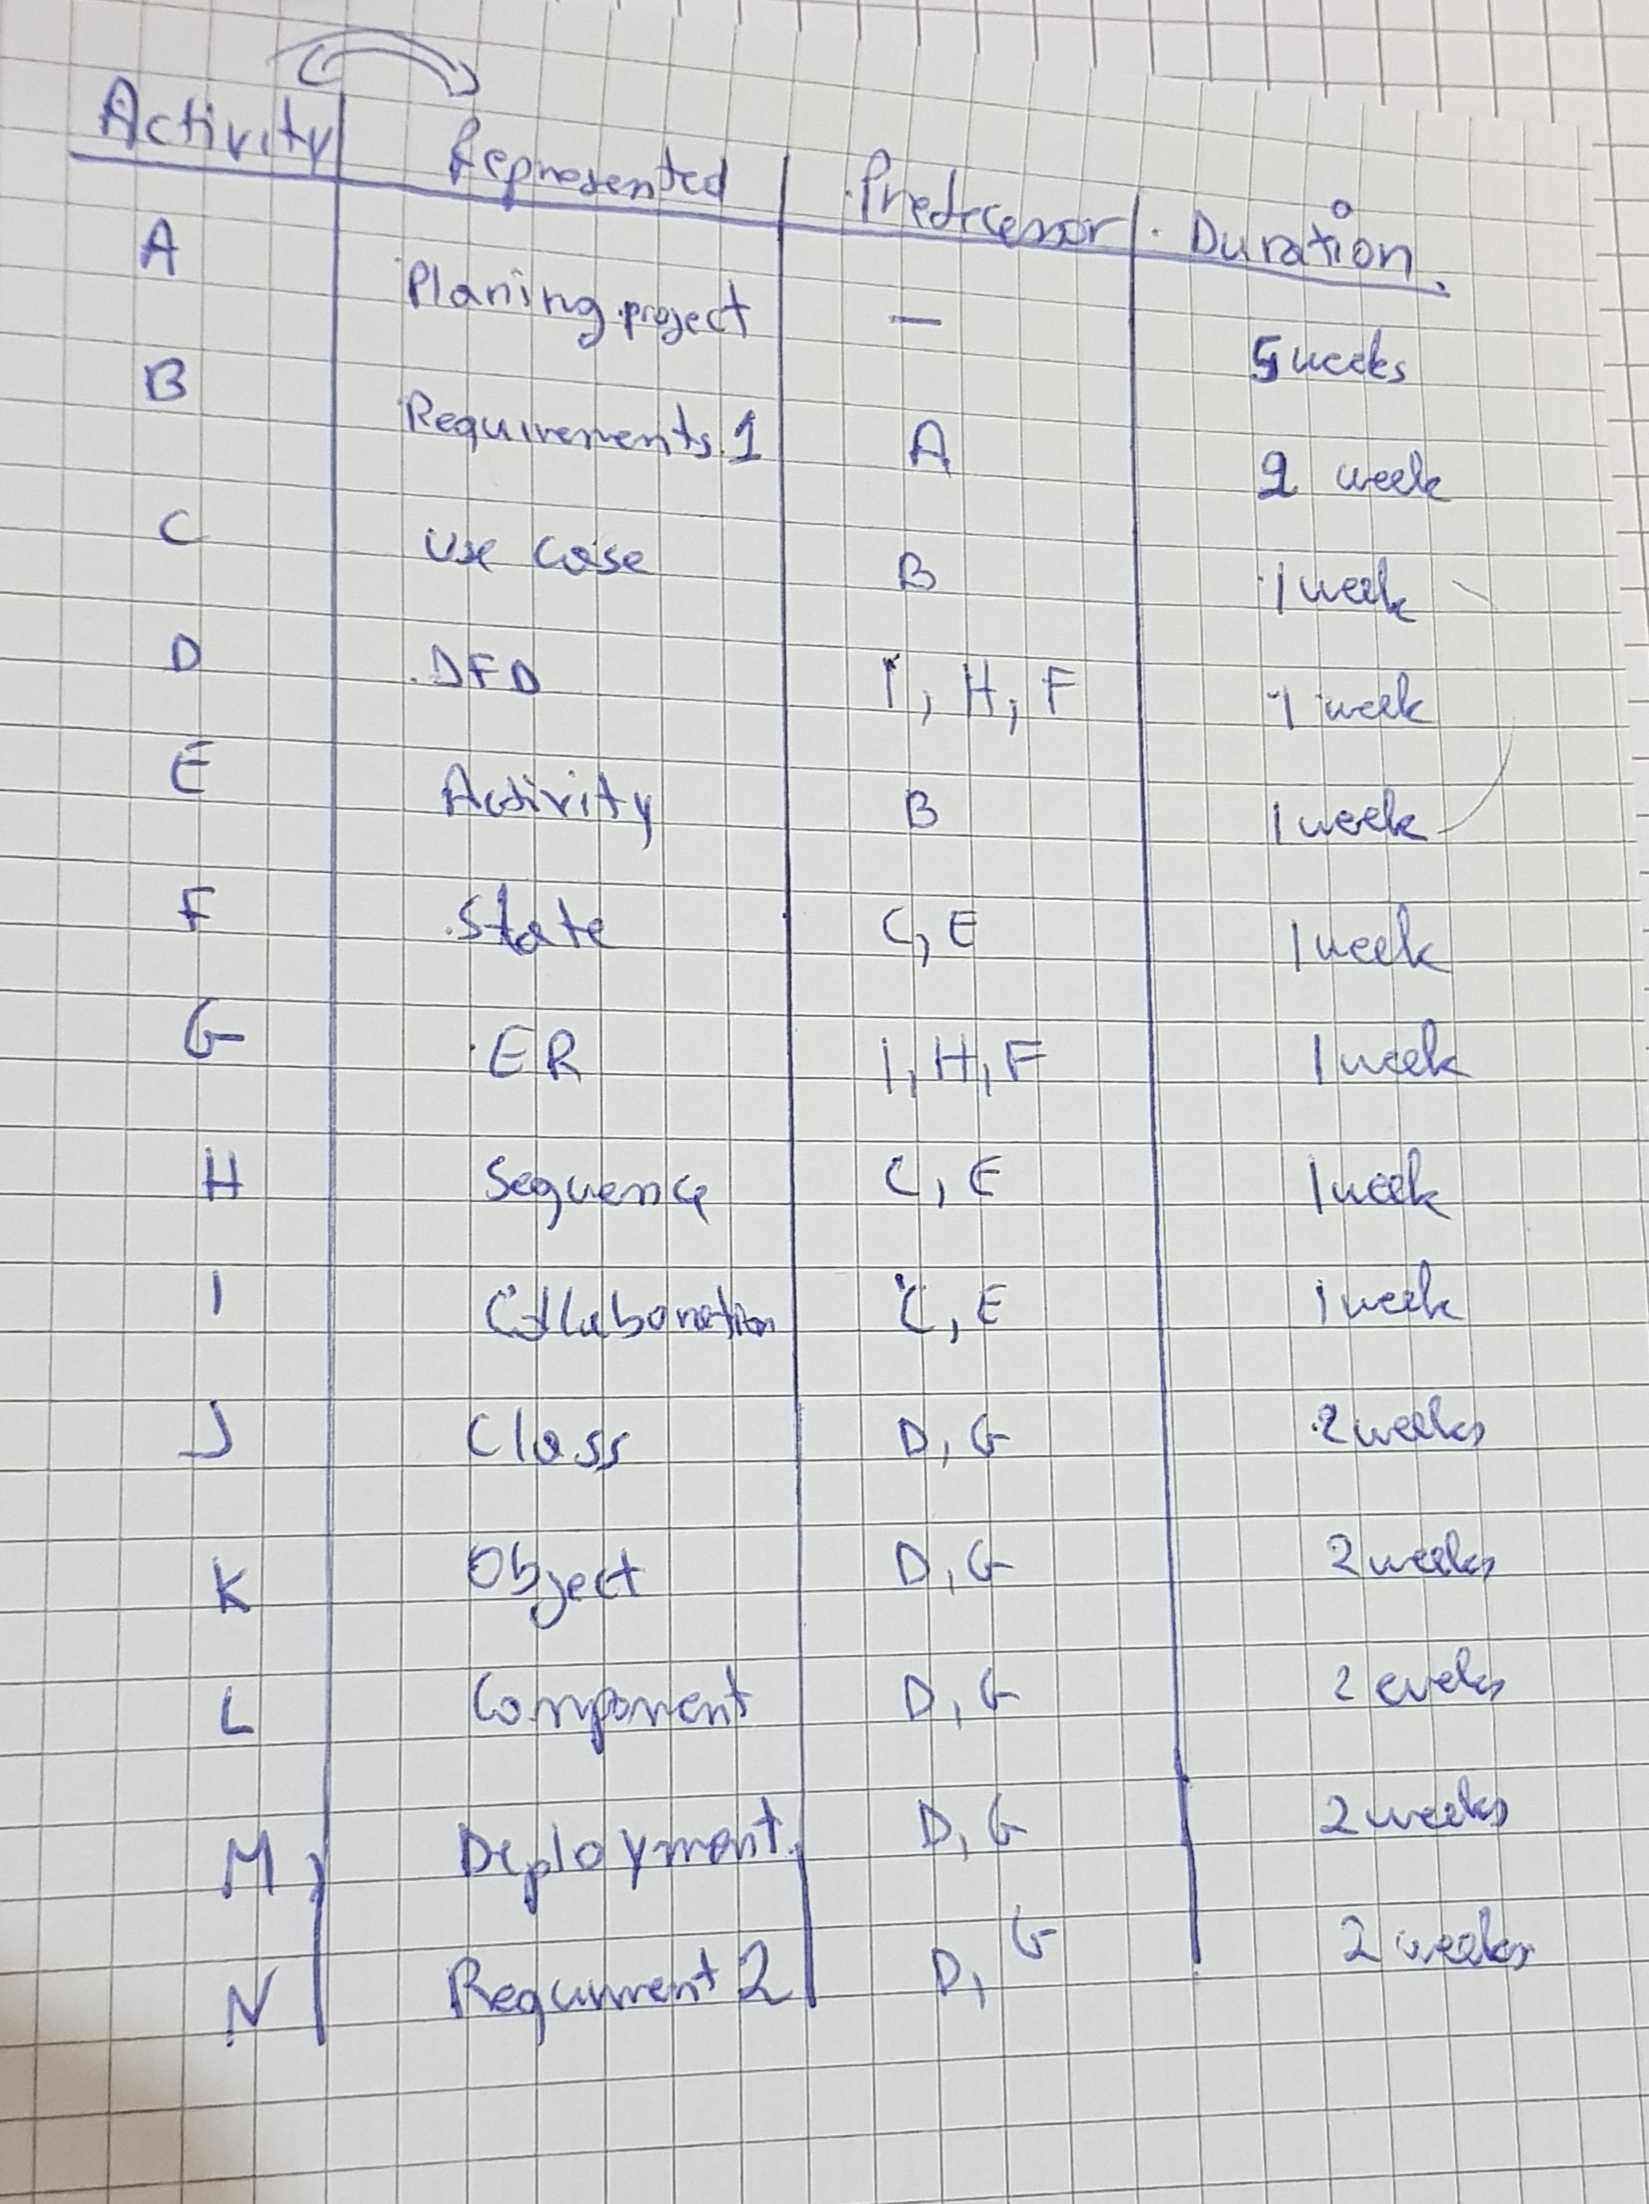 Activity Represented Predecessor Duration
A Planing project — 5 weeks
B Requirements 1 A 2 week
C Use case B 1 week
D DFD I, H, F 1 week
E Activity B 1 week
F State C, E 1 week
G ER I, H, F 1 week
H Sequence C, E 1 week
I Collaboration C, E 1 week
J Class D, G 2 weeks
K Object D, G 2 weeks
L Component D, G 2 eveks
M Deployment D, G 2 weeks
N 2 D, G 2 weeks